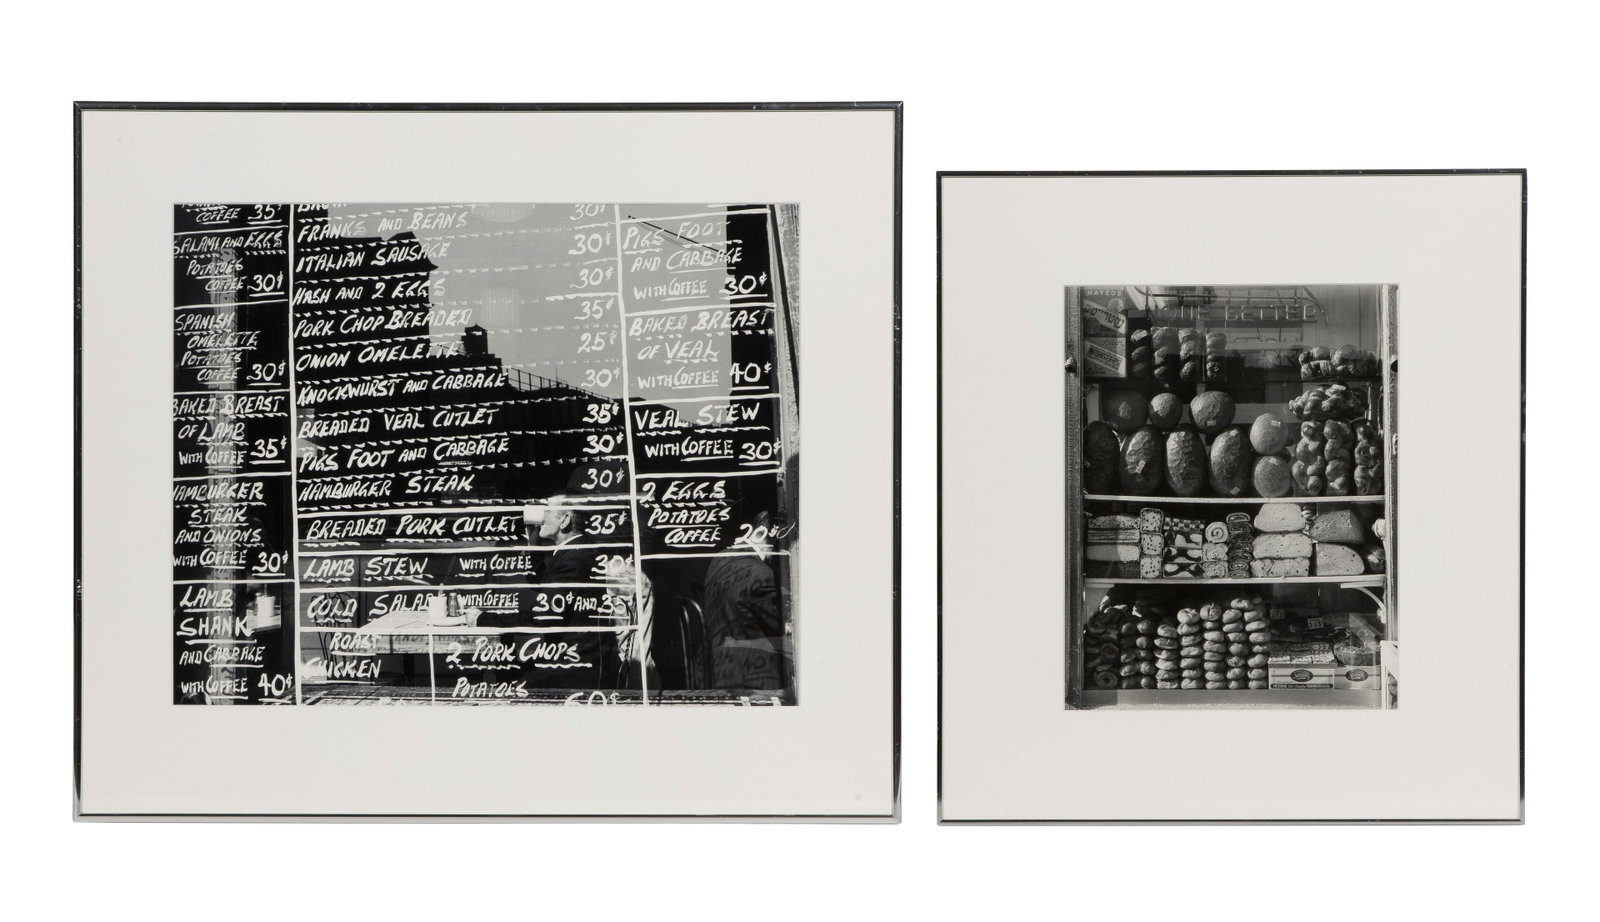 COFFEE 35¢
SALAMI AND EGGS
POTATOES
COFFEE 30¢
SPANISH
OMELETTE
POTATOES
COFFEE 30¢
BAKED BREAST
OF LAMB
WITH COFFEE 35¢
HAMBURGER
STEAK
AND ONIONS
WITH COFFEE 30¢
LAMB
SHANK
AND CABBAGE
WITH COFFEE 40¢
30¢
FRANKS AND BEANS 30¢
ITALIAN SAUSAGE 30¢
HASH AND 2 EGGS 35¢
PORK CHOP BREADED 25¢
ONION OMELETTE 30¢
KNOCKWURST AND CABBAGE 35¢
BREADED VEAL CUTLET 30¢
PIGS FOOT AND CABBAGE 30¢
HAMBURGER STEAK
BREADED PORK CUTLET 35¢
LAMB STEW WITH COFFEE 30¢
COLD SALAD WITH COFFEE 30¢ AND 35¢
ROAST
CHICKEN
2 PORK CHOPS
POTATOES
60¢
PIGS FOOT
AND CABBAGE
WITH COFFEE 30¢
BAKED BREAST
OF VEAL
WITH COFFEE 40¢
VEAL STEW
WITH COFFEE 30¢
2 EGGS
POTATOES
COFFEE 20¢
MATZOS
ONE BETTER